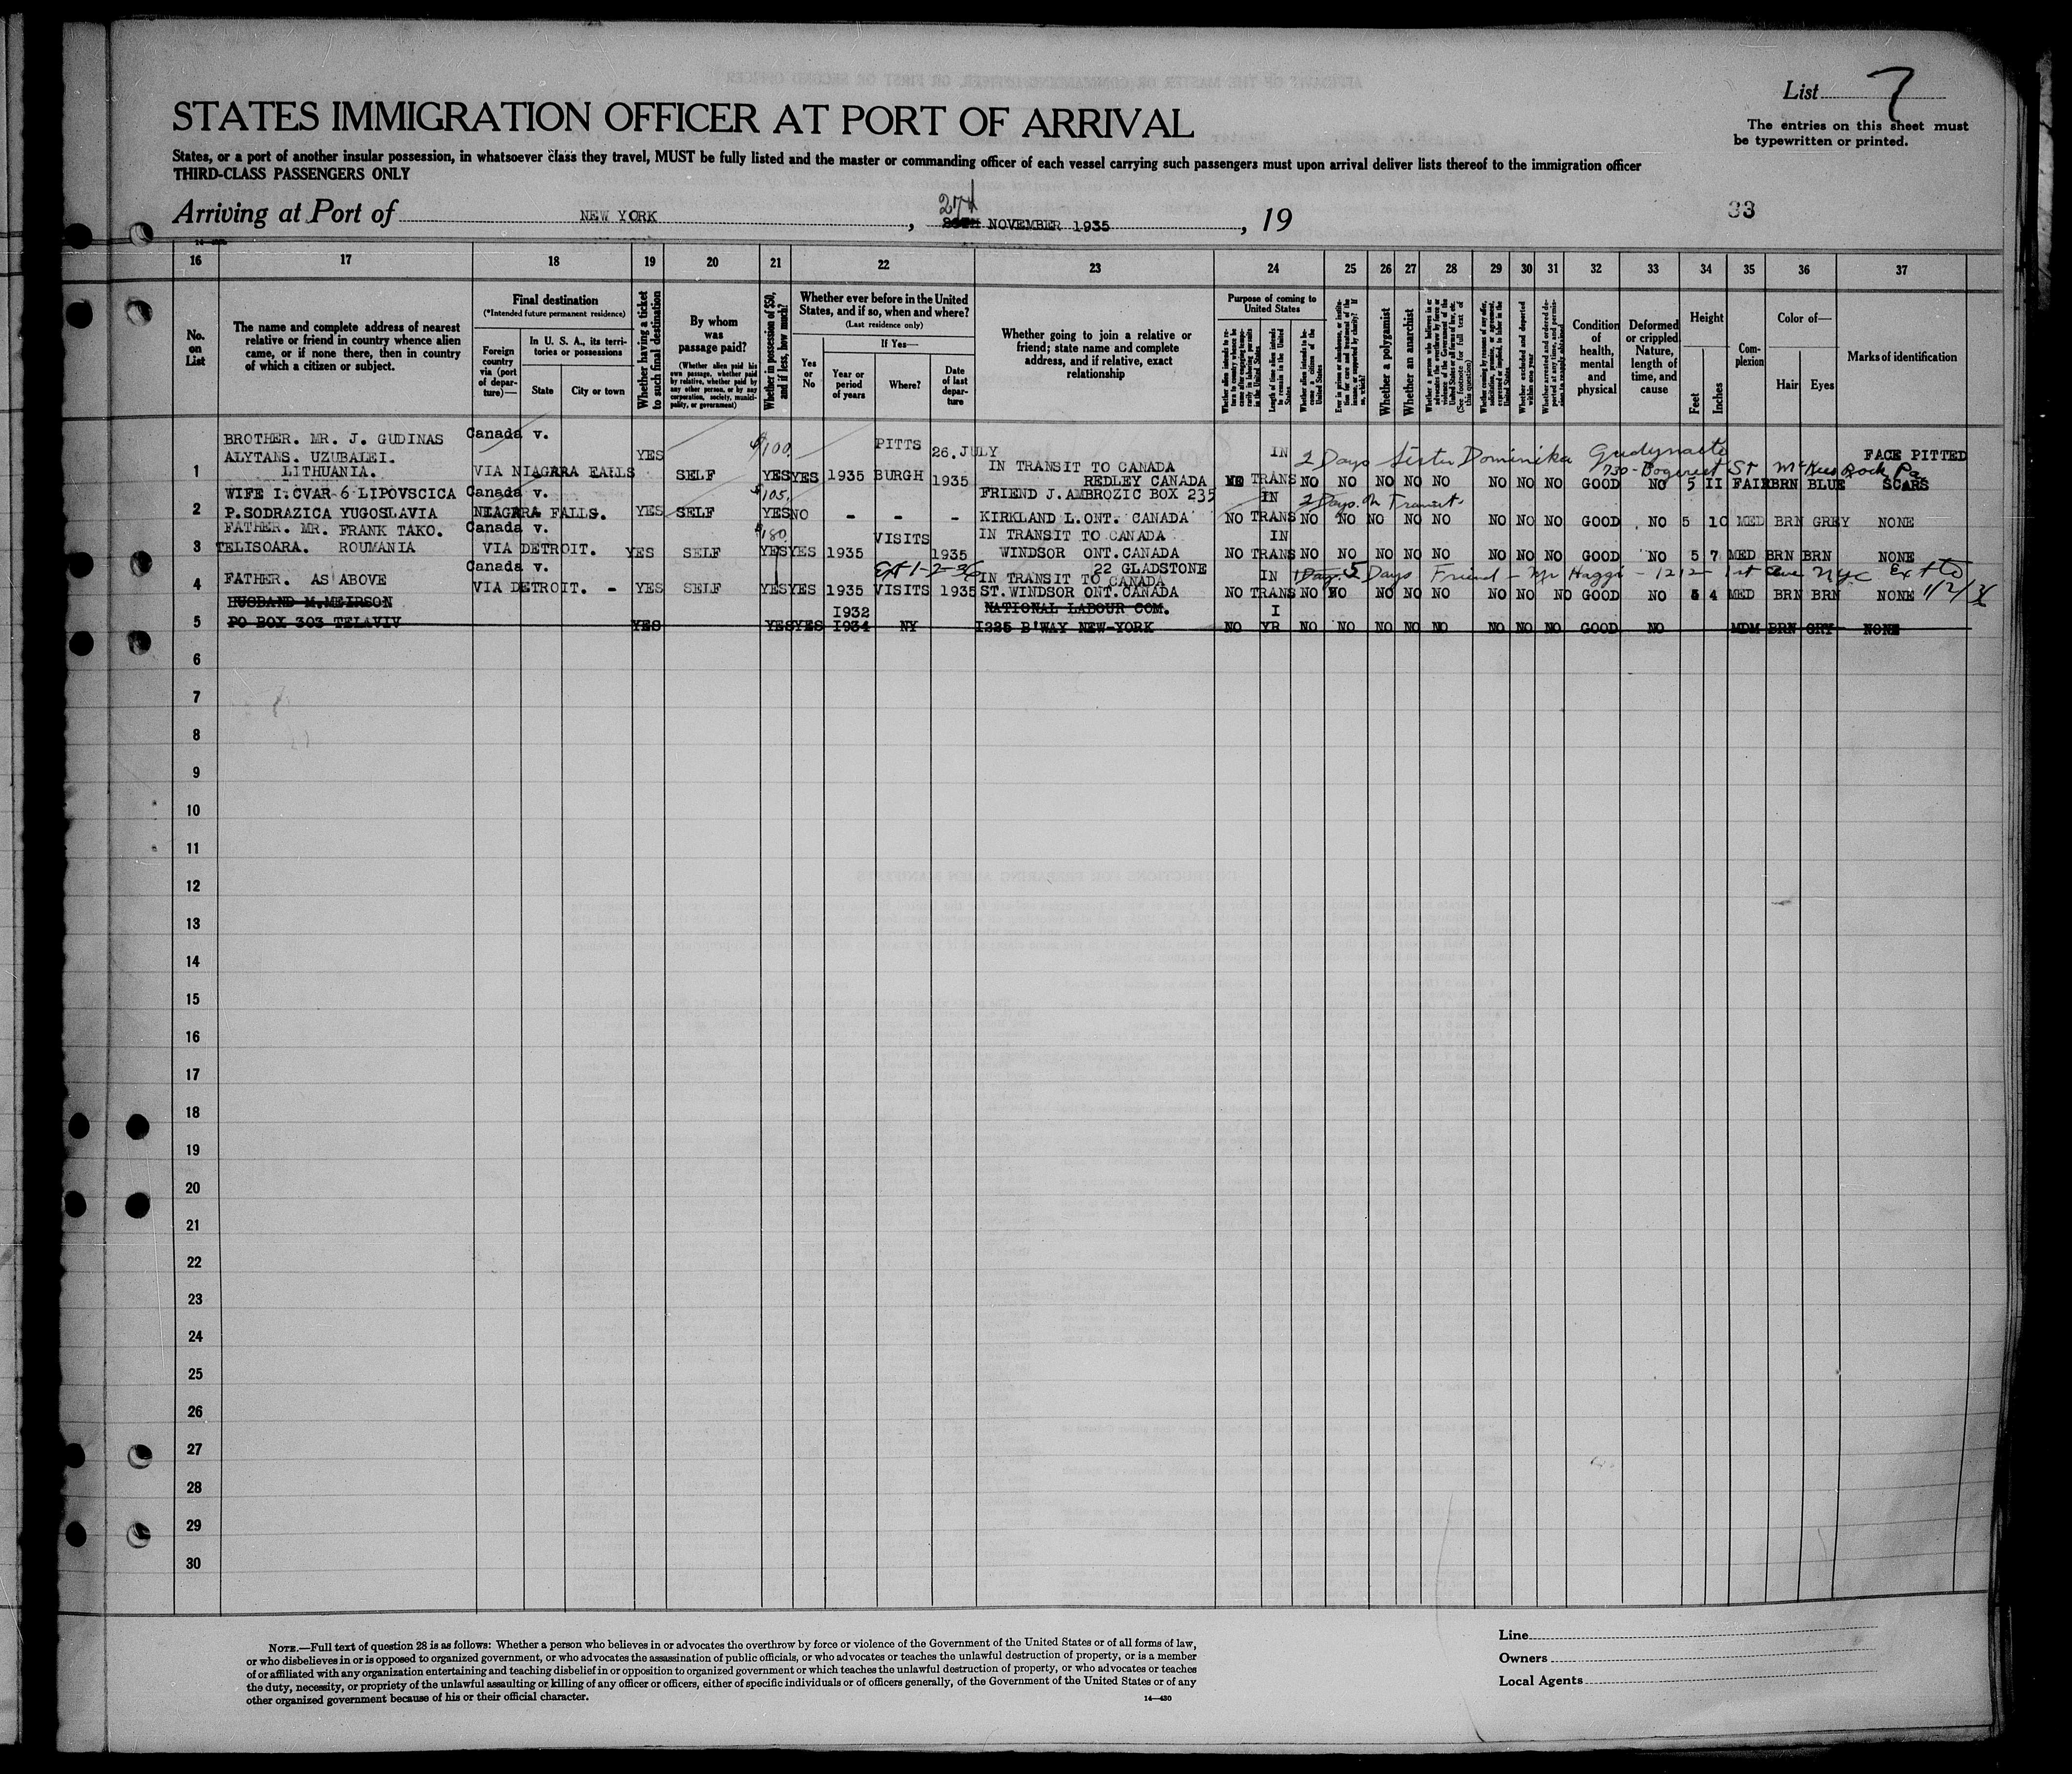 List 7
STATES IMMIGRATION OFFICER AT PORT OF ARRIVAL
The entries on this sheet must
be typewritten or printed.
States, or a port of another insular possession, in whatsoever class they travel, MUST be fully listed and the master or commanding officer of each vessel carrying such passengers must upon arrival deliver lists thereof to the immigration officer
THIRD-CLASS PASSENGERS ONLY
Arriving at Port of NEW YORK, 27th NOVEMBER 1935, 19
33
16 17 18 19 20 21 22 23 24 25 26 27 28 29 30 31 32 33 34 35 36 37
No. on List
The name and complete address of nearest relative or friend in country whence alien came, or if none there, then in country of which a citizen or subject.
Final destination
(*Intended future permanent residence)
Foreign country via (port of departure)—
In U. S. A., its territories or possessions
State
City or town
Whether having a ticket to such final destination
By whom was passage paid?
(Whether alien paid his own passage, whether paid by relative, whether paid by any other person, or by any corporation, society, municipality, or government)
Whether in possession of $50, and if less, how much?
Whether ever before in the United States, and if so, when and where?
(Last residence only)
Yes or No
If Yes—
Year or period of years
Where?
Date of last departure
Whether going to join a relative or friend; state name and complete address, and if relative, exact relationship
Purpose of coming to United States
Whether a polygamist
Whether an anarchist
Condition of health, mental and physical
Deformed or crippled. Nature, length of time, and cause
Height
Feet
Inches
Complexion
Color of—
Hair
Eyes
Marks of identification
BROTHER. MR. J. GUDINAS Canada v. $100 PITTS 26.JULY IN 2 Days Sister Dominika FACE PITTED
ALYTANS. UZUBALEI. YES IN TRANSIT TO CANADA 730 - St McKees Rock Pa
1 LITHUANIA. VIA NIAGARA FALLS SELF YES YES 1935 BURGH 1935 REDLEY CANADA NO TRANS NO NO NO NO NO NO NO NO GOOD NO 5 II FAIR BRN BLUE SCARS
WIFE I.CVAR 6 LIPOVSCICA Canada v. $105. FRIEND J.AMBROZIC BOX 235 IN 2 Days in Transit
2 P.SODRAZICA YUGOSLAVIA NIAGARA FALLS. YES SELF YES NO - - - KIRKLAND L.ONT. CANADA NO TRANS NO NO NO NO NO NO NO NO GOOD NO 5 10 MED BRN GREY NONE
FATHER. MR. FRANK TAKO. Canada v. $180. VISITS IN TRANSIT TO CANADA IN
3 TELISOARA. ROUMANIA VIA DETROIT. YES SELF YES YES 1935 1935 WINDSOR ONT.CANADA NO TRANS NO NO NO NO NO NO NO NO GOOD NO 5 7 MED BRN BRN NONE
Canada v. Ext 1-2-36 22 GLADSTONE
IN TRANSIT TO CANADA IN 1 Day. 5 Days Friend - Mr Haggi - 1212 - 1st Ave NYC Ext to 1/2/36
4 FATHER. AS ABOVE VIA DETROIT. - YES SELF YES YES 1935 VISITS 1935 ST.WINDSOR ONT.CANADA NO TRANS NO NO NO NO NO NO NO NO GOOD NO 5 4 MED BRN BRN NONE
HUSBAND M.MEIRSON I932 NATIONAL LABOUR COM. I
5 PO BOX 303 TELAVIV YES YES YES I934 NY I225 B'WAY NEW-YORK NO YR NO NO NO NO NO NO NO NO GOOD NO MDM BRN GRY NONE
6
7
8
9
10
11
12
13
14
15
16
17
18
19
20
21
22
23
24
25
26
27
28
29
30
NOTE.—Full text of question 28 is as follows: Whether a person who believes in or advocates the overthrow by force or violence of the Government of the United States or of all forms of law,
or who disbelieves in or is opposed to organized government, or who advocates the assassination of public officials, or who advocates or teaches the unlawful destruction of property, or is a member
of or affiliated with any organization entertaining and teaching disbelief in or opposition to organized government or which teaches the unlawful destruction of property, or who advocates or teaches
the duty, necessity, or propriety of the unlawful assaulting or killing of any officer or officers, either of specific individuals or of officers generally, of the Government of the United States or of any
other organized government because of his or their official character.
14—430
Line
Owners
Local Agents